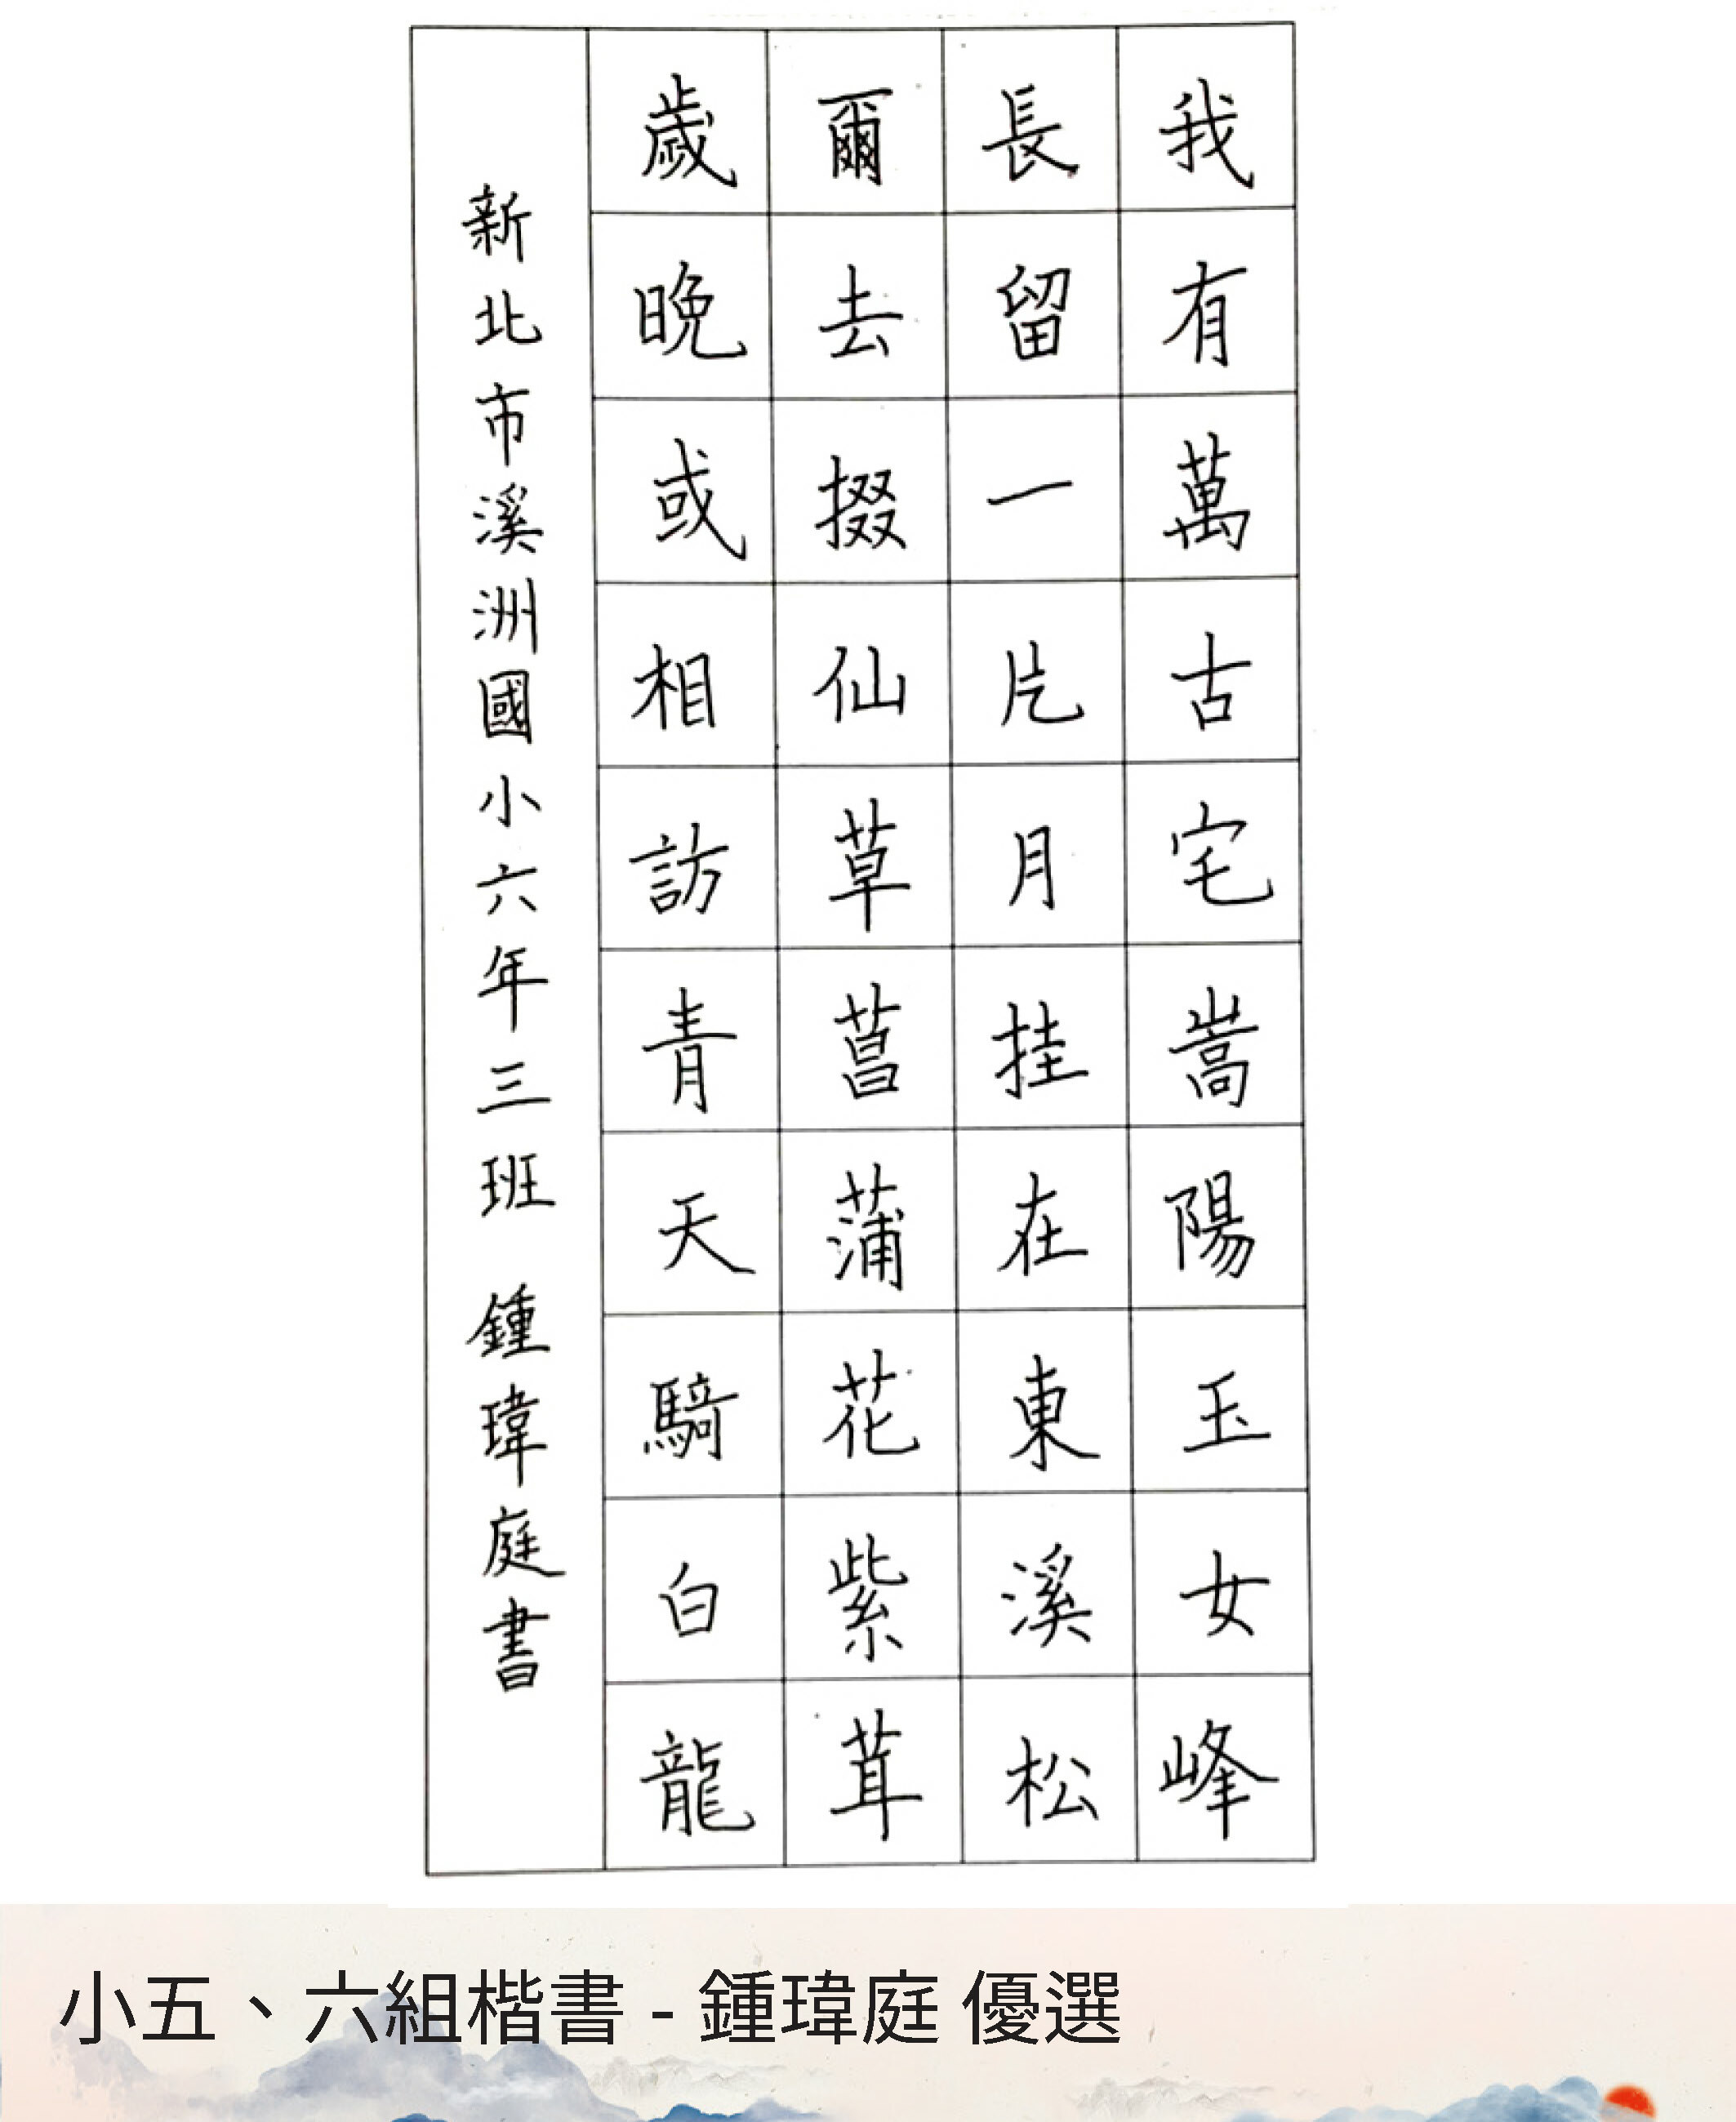 我有萬古宅嵩陽玉女峰
長留一片月挂在東溪松
爾去掇仙草菖蒲花紫茸
歲晚或相訪青天騎白龍
新北市溪洲國小六年三班 鍾瑋庭書
小五、六組楷書 - 鍾瑋庭 優選